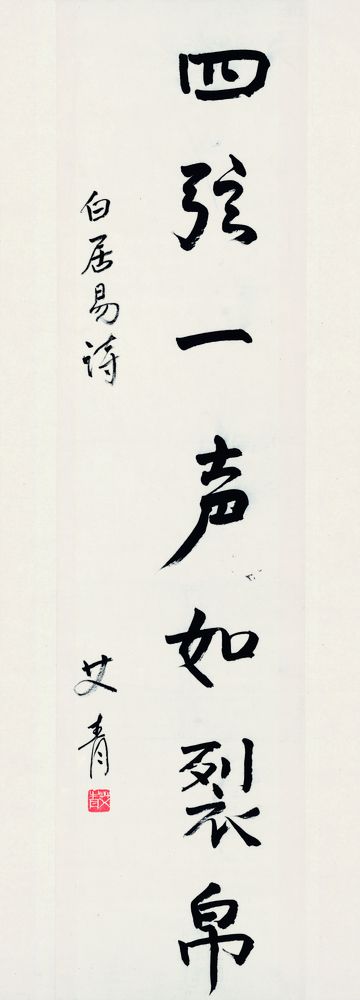 四弦一声如裂帛
白居易诗
艾青
艾青